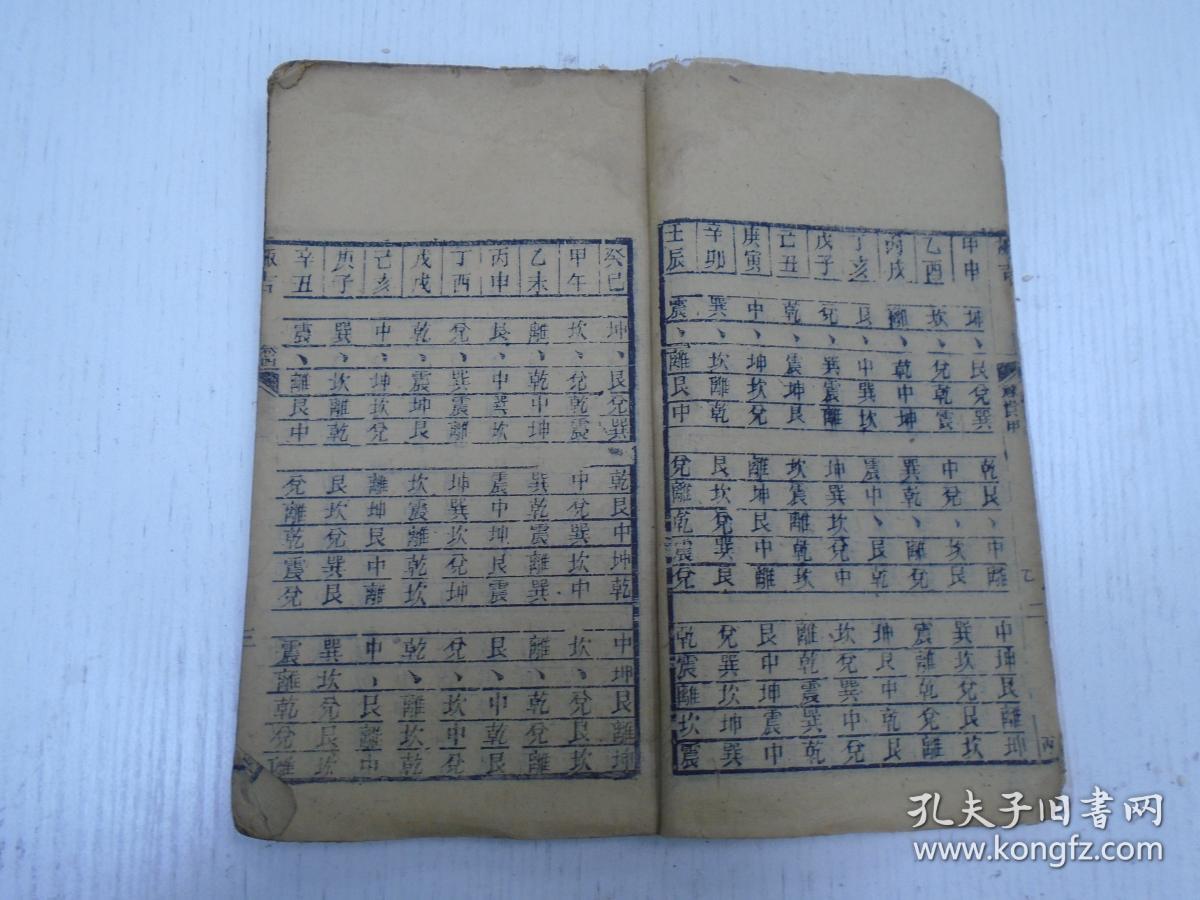 甲申坤、艮兌巽乾艮、中離中坤艮離坤
乙酉坎、兌乾震中兌、坎艮巽坎兌艮坎
丙戌離、乾中坤巽乾、離兌震離乾兌離
丁亥艮、中巽坎震中、艮乾坤艮中乾艮
戊子兌、巽震離坤巽坎兌中坎兌巽中兌
己丑乾、震坤艮坎震離乾坎離乾震巽乾
庚寅中、坤坎兌離坤艮中離艮中坤震中
辛卯巽、坎離乾艮坎兌巽艮兌巽坎坤巽
壬辰震、離艮中兌離乾震兌乾震離坎震
癸巳坤、艮兌巽乾艮中坤乾中坤艮離坤
甲午坎、兌乾震中兌巽坎中坎、兌艮坎
乙未離、乾中坤巽乾震離巽離、乾兌離
丙申艮、中巽坎震中坤艮震艮、中乾艮
丁酉兌、巽震離坤巽坎兌坤兌、坎中兌
戊戌乾、震坤艮坎震離乾坎乾、離坎乾
己亥中、坤坎兌離坤艮中離中、艮離中
庚子巽、坎離乾艮坎兌巽艮巽坎兌艮坎
辛丑震、離艮中兌離乾震兌震離乾兌離
二
孔夫子旧书网
www.kongfz.com